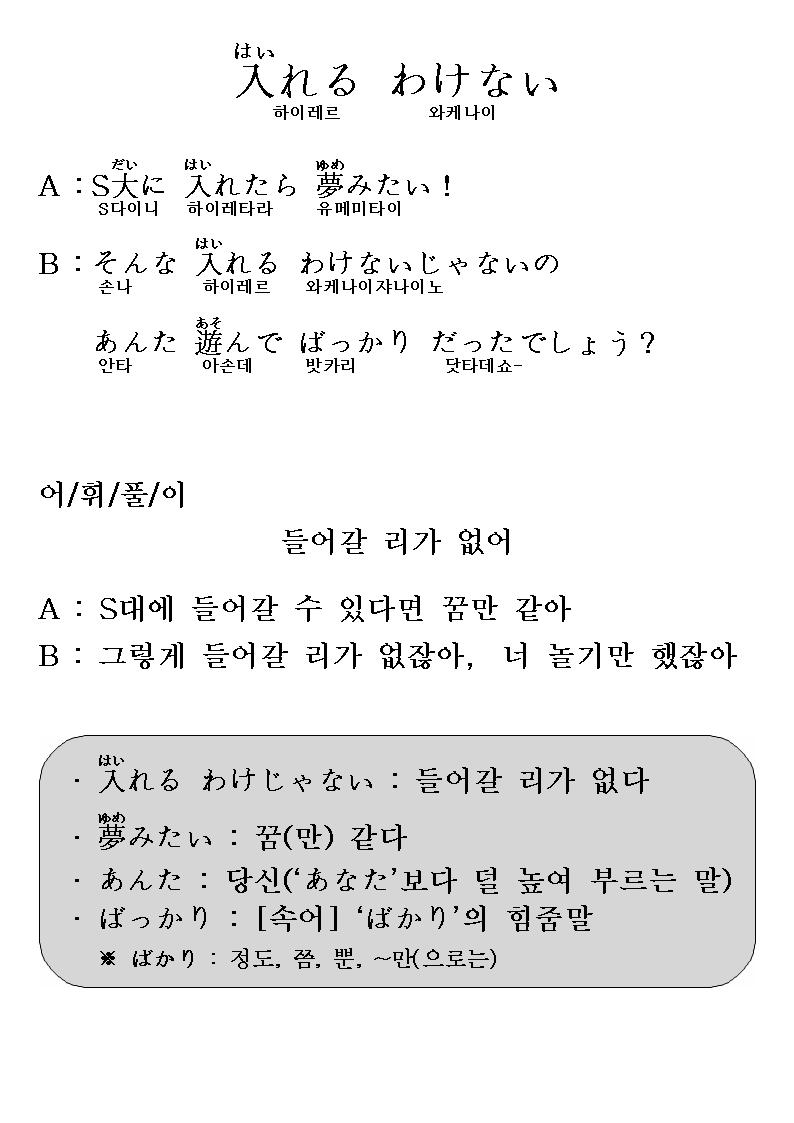 はい
入れる わけない
하이레르 와케나이
だい はい ゆめ
A : S大に 入れたら 夢みたい!
S다이니 하이레타라 유메미타이
はい
B : そんな 入れる わけないじゃないの
손나 하이레르 와케나이쟈나이노
あそ
あんた 遊んで ばっかり だったでしょう?
안타 아손데 밧카리 닷타데쇼-
어/휘/풀/이
들어갈 리가 없어
A : S대에 들어갈 수 있다면 꿈만 같아
B : 그렇게 들어갈 리가 없잖아, 너 놀기만 했잖아
はい
· 入れる わけじゃない : 들어갈 리가 없다
ゆめ
· 夢みたい : 꿈(만) 같다
· あんた : 당신(‘あなた’보다 덜 높여 부르는 말)
· ばっかり : [속어] ‘ばかり’의 힘줌말
※ ばかり : 정도, 쯤, 뿐, ~만(으로는)